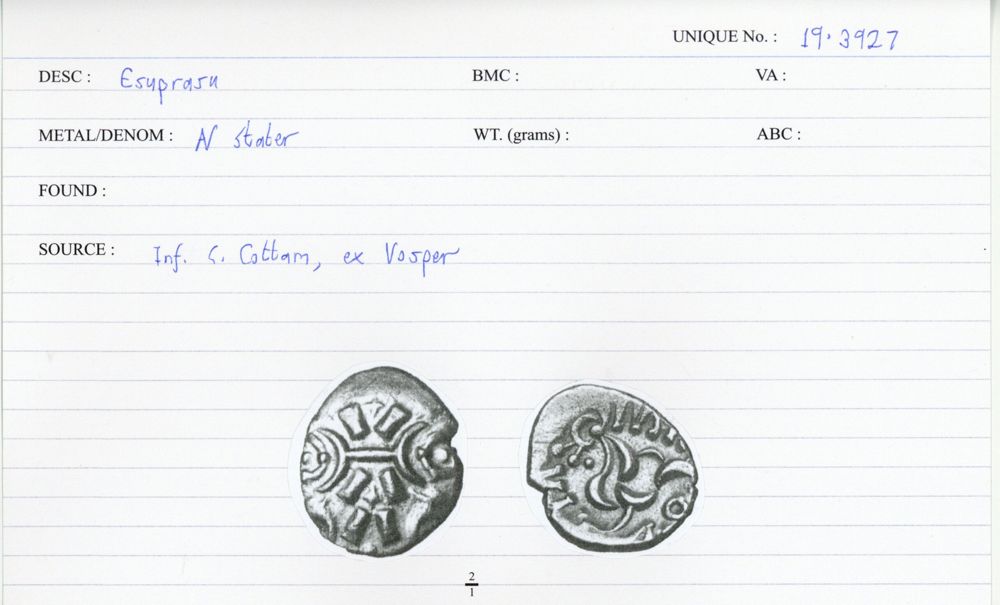 UNIQUE No. : 19.3927
DESC : Esuprasu BMC : VA :
METAL/DENOM : AV stater WT. (grams) : ABC :
FOUND :
SOURCE : Inf. G. Cottam, ex Vosper
2
1